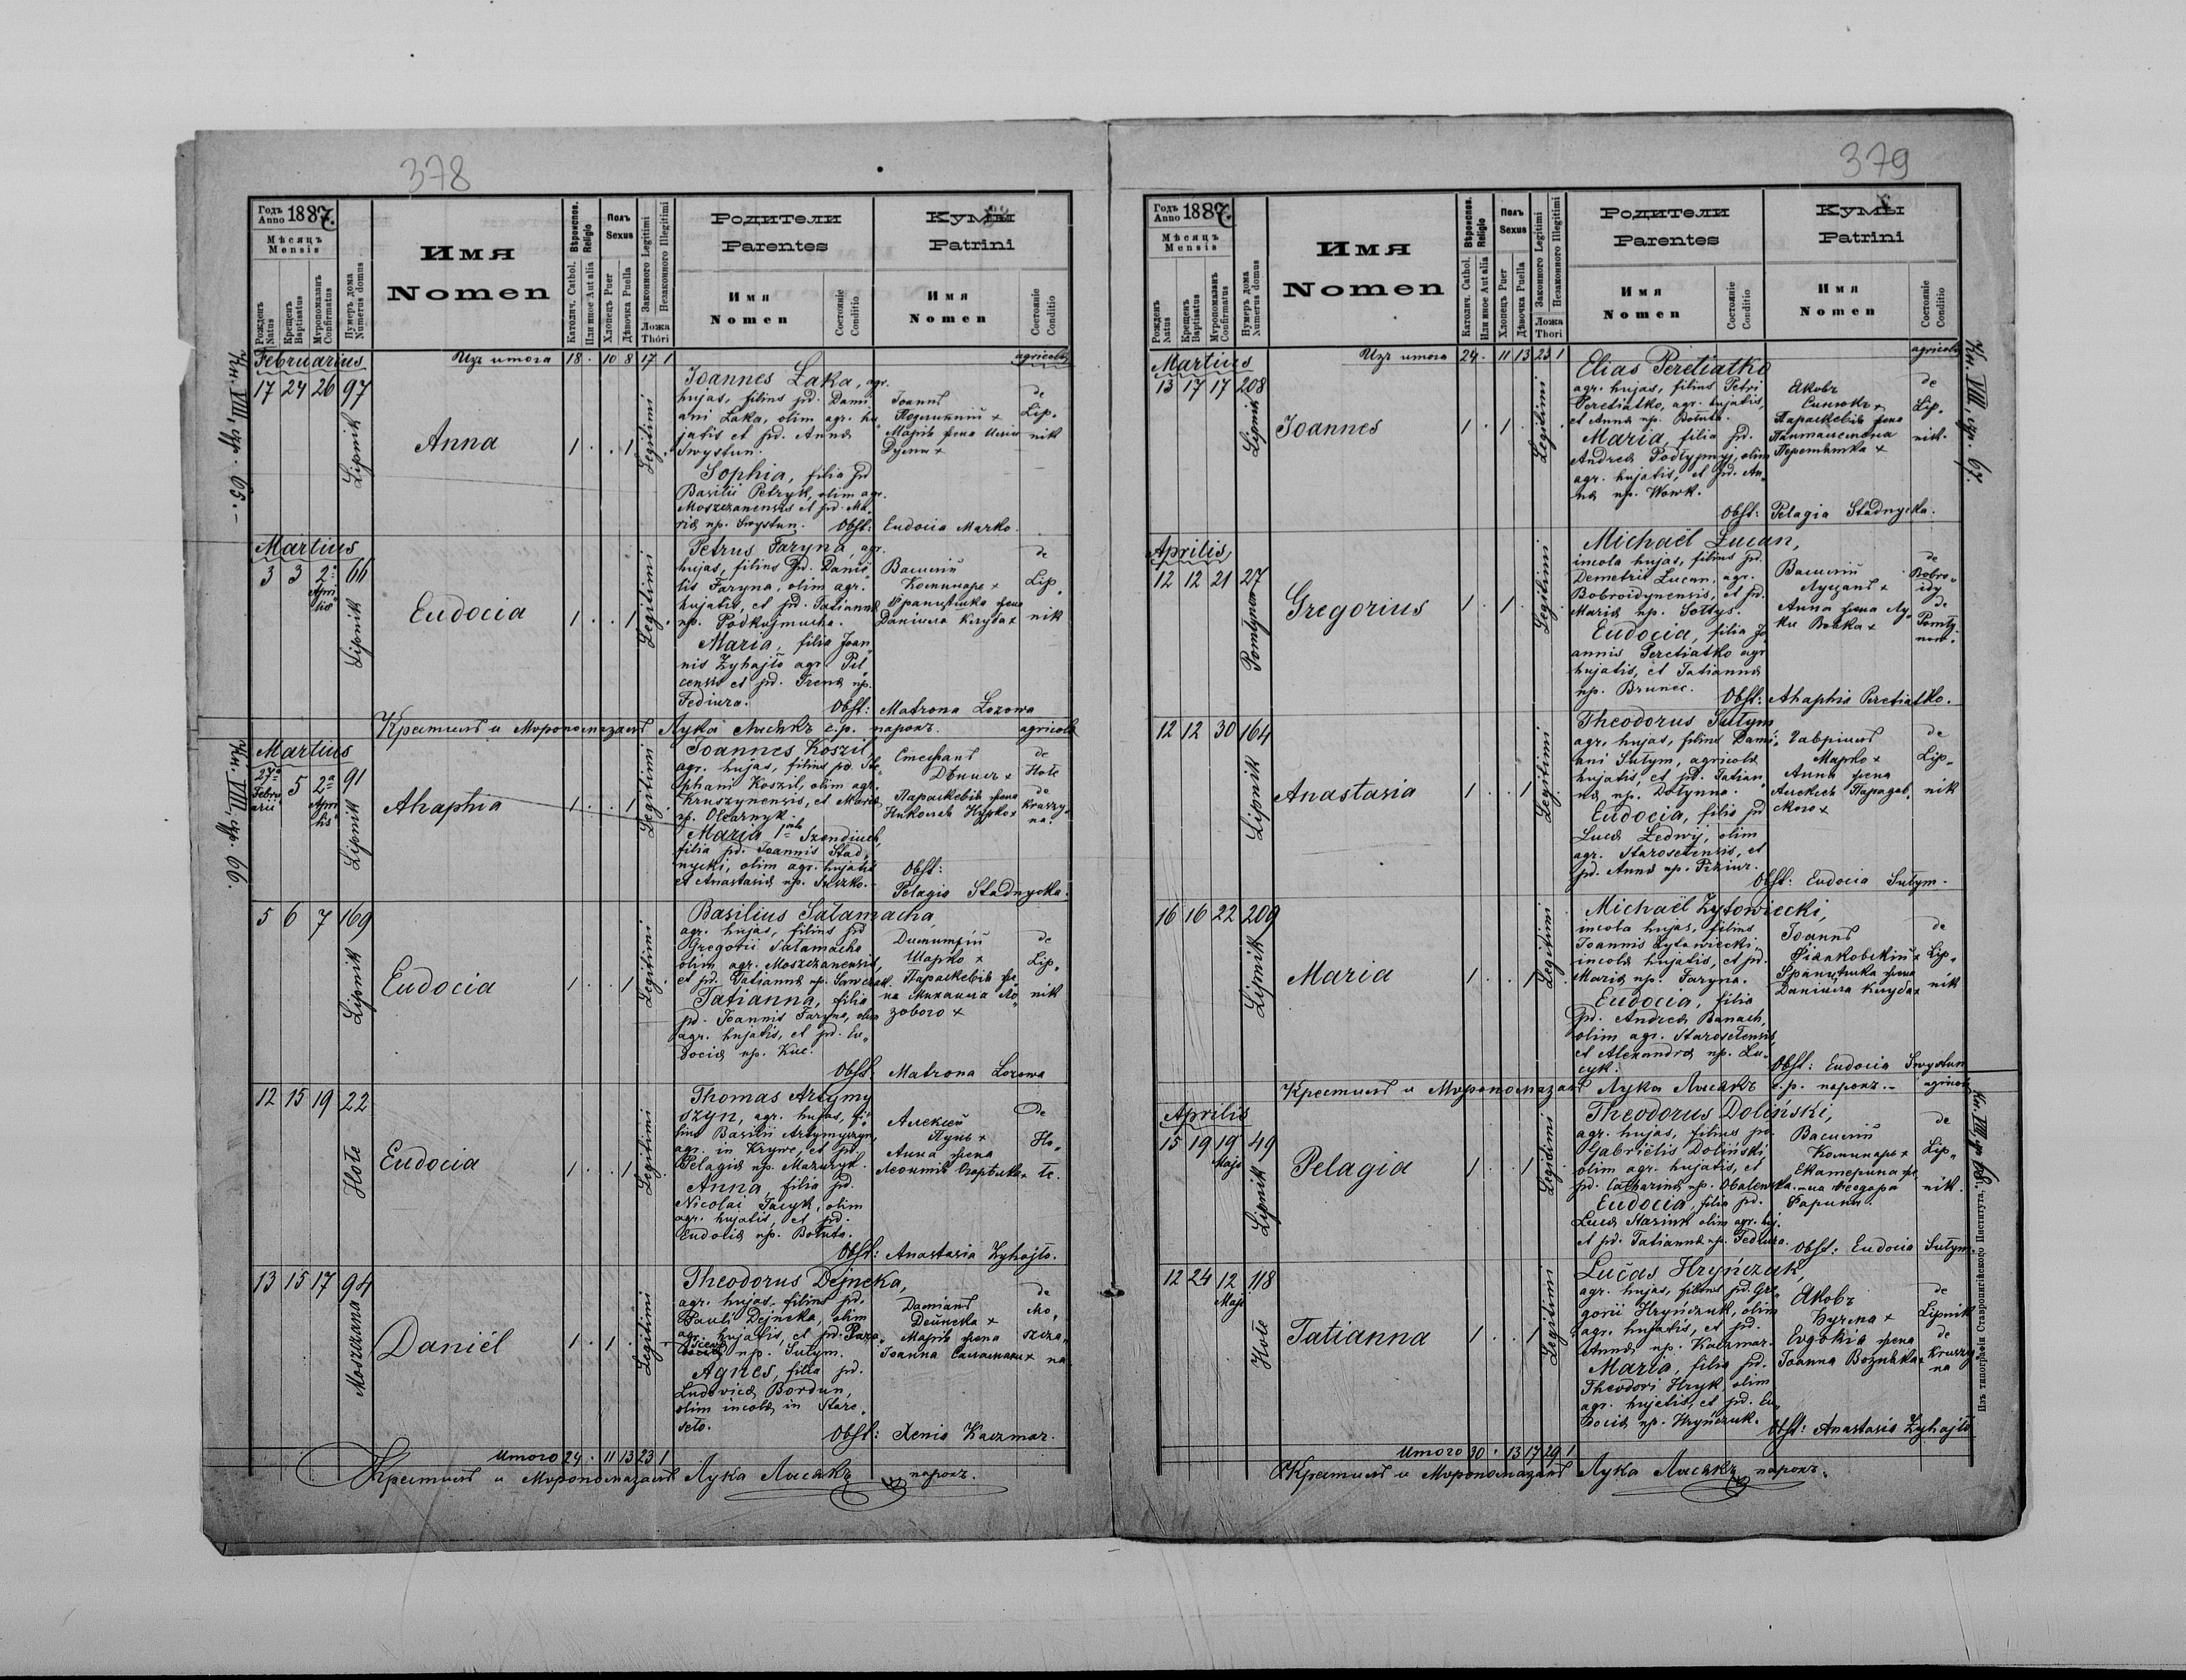 378
Годъ Anno 1887.
Мѣсяцъ
Mensis
Рожденъ Natus
Крещенъ Baptisatus
Муропомазанъ Confirmatus
Нумеръ дома Numerus domus
Имя
Nomen
Вѣроиспов. Religio
Католич. Cathol.
Или иное Aut alia
Полъ
Sexus
Хлопецъ Puer
Дѣвочка Puella
Законного Legitimi
Незаконного Illegitimi
Ложа
Thori
Родители
Parentes
Имя
Nomen
Состояніе
Conditio
Кумы
Patrini
Имя
Nomen
Состояніе
Conditio
Кн. VIII, стр. 65.
Februarius
18 . 10 8 17 1
agricolæ
17 24 26 97
Lipnik
Anna
1 . . 1
Legitimi
Joannes Łaka, agr.
hujas, filius pd. Dami
ani Łaka, olim agr. hu
jatis et pd. Anna
Swystun.
Sophia, filia pd
Basilii Petryk, olim agr.
Moszczanensis et pd. Ma
riæ np. Swystun.
Obst: Eudocia Marko.
de
Lip
nik
Martius
3 3 2 Aprilis 66
Lipnik
Eudocia
1 . . 1
Legitimi
Petrus Faryna, agr.
hujas, filius pd. Danie
lis Faryna, olim agr.
hujatis, et pd. Tatianna
np. Podkujmucha.
Maria, filia Joan
nis Zyhajło agr. Pil
censis et pd. Irenæ np.
Fediura.
Василій
Коминаръ +
Даніила Клуба +
de
Lip
nik
Obst: Matrona Łozowa
Крестилъ и Муропомазалъ Лука Лысякъ с.р. парохъ.
agricolæ
Кн. VIII, стр. 66.
Martius
27ª Februarii 5 2ª Aprilis 91
Lipnik
Ahaphia
1 . . 1
Legitimi
Joannes Koszil,
agr. hujas, filius pd. Ste
phani Koszil, olim agr.
Kruszynensis, et Mariæ
np. Olearnyk.
Maria
filia pd. Joannis Stad
nycki, olim agr. hujatis
et Anastasiæ np. Suszko.
Стефанъ
de
Hołe
de
Kruszy
na.
Obst:
Pelagia Stadnycka.
5 6 7 169
Lipnik
Eudocia
1 . . 1
Legitimi
Basilius Sałamacha,
agr. hujas, filius pd
Gregorii Sałamacha
olim agr. Moszczanensis,
et pd. Tatianna np. Sawczak.
Tatianna, filia
pd. Joannis Faryna, olim
agr. hujatis, et pd. Eu
dociæ np. Kuc.
Димитрій
Шарко +
Параскевія же
на Михаила Ло
зового +
de
Lip
nik
Obst: Matrona Łozowa
12 15 19 22
Hołe
Eudocia
1 . . 1
Legitimi
Thomas Artymy
szyn, agr. hujas, fi
lius Basilii Artymyszyn,
agr. in Krywe, et pd.
Pelagiæ np. Mazuryk.
Anna, filia pd.
Nicolai Jacyk, olim
agr. hujatis, et pd.
Eudociæ np. Bołuta.
Алексей
Пунь +
Анна жена
de
Ho
łe.
Obst: Anastasia Zyhajło.
13 15 17 94
Moszczana
Daniel
1 . 1 .
Legitimi
Theodorus Dejneka,
agr. hujas, filius pd.
Pauli Dejneka, olim
agr. hujatis, et pd. Para
sceviæ np. Sutym.
Agnes, filia pd.
Ludovici Bordun,
olim incolæ in Stare
seło.
Даміанъ
Дейнека +
Марія жена
Іоанна Саламахи +
de
Mo
szcza
na
Obst: Xenia Kaczmar.
Итого 24 . 11 13 23 1
Крестилъ и Муропомазалъ Лука Лысякъ парохъ.
379
Годъ Anno 1887.
Мѣсяцъ
Mensis
Рожденъ Natus
Крещенъ Baptisatus
Муропомазанъ Confirmatus
Нумеръ дома Numerus domus
Имя
Nomen
Вѣроиспов. Religio
Католич. Cathol.
Или иное Aut alia
Полъ
Sexus
Хлопецъ Puer
Дѣвочка Puella
Законного Legitimi
Незаконного Illegitimi
Ложа
Thori
Родители
Parentes
Имя
Nomen
Состояніе
Conditio
Кумы
Patrini
Имя
Nomen
Состояніе
Conditio
Кн. VIII, стр. 67.
Martius
24 . 11 13 23 1
agricolæ
13 17 17 208
Lipnik
Joannes
1 . 1 .
Legitimi
Elias Peretiatko
agr. hujas, filius Petri
Peretiatko, agr. hujatis,
et Anna np. Bołuta.
Maria, filia pd.
Andreæ Podłypnyj, olim
agr. hujatis, et pd. An
næ np. Wowk.
Яковъ
Синюкъ +
Параскевія жена
Пантелемона
Перетятка +
de
Lip
nik.
Obst: Pelagia Stadnycka.
Aprilis
12 12 21 27
Pomłynow
Gregorius
1 . 1 .
Legitimi
Michaël Łucan,
incola hujas, filius pd.
Demetrii Łucan, agr.
Bobroidynensis, et pd.
Mariæ np. Sołtys.
Eudocia, filia Jo
annis Peretiatko agr
hujatis, et Tatianna
np. Brunec.
Василій
Луцанъ +
Анна жена Лу
ки Вовка +
de
Bobro
idy
de
Pomły
now.
Obst: Ahaphia Peretiatko.
12 12 30 164
Lipnik
Anastasia
1 . . 1
Legitimi
Theodorus Sutym
agr. hujas, filius Dami
ani Sutym, agricolæ
hujatis, et pd. Tatian
næ np. Dołynna.
Eudocia, filia pd
Lucæ Ledwij, olim
agr. Starosełensis, et
pd. Anna np. Piziur.
Гавриилъ
Марко +
Анна жена
de
Lip
nik
Obst: Eudocia Sutym.
16 16 22 209
Lipnik
Maria
1 . . 1
Legitimi
Michaël Zytowiecki,
incola hujas, filius
Joannis Zytowiecki
incolæ hujatis, et pd.
Mariæ np. Faryna.
Eudocia, filia
pd. Andreæ Banach,
olim agr. Starosełensis,
et Alexandra np. Lu
cyk.
Іоаннъ
Даніила Клуба +
de
Lip
nik
Obst: Eudocia Swystun
Крестилъ и Муропомазалъ Лука Лысякъ с.р. парохъ.
Кн. VIII, стр. 68.
Aprilis
15 19 19 Maji 49
Lipnik
Pelagia
1 . . 1
Legitimi
Theodorus Doliński,
agr. hujas, filius pd.
Gabriëlis Doliński,
olim agr. hujatis, et
pd. Catharinæ np. Obalenska.
Eudocia, filia pd.
Lucæ Stasiuk olim agr. huj.
et pd. Tatianna np. Fediura.
Василій
Коминаръ +
Екатерина же
на Феодора
Фарины.
de
Lip
nik.
Obst: Eudocia Sutym.
12 24 12 Maji 118
Hołe
Tatianna
1 . . 1
Legitimi
Lucas Hryńczuk,
agr. hujas, filius pd. Gre
gorii Hryńczuk, olim
agr. hujatis, et pd.
Anna np. Kaczmar.
Maria, filia pd.
Theodori Hryk, olim
agr. hujatis, et pd. Eu
dociæ np. Hryńczuk.
Яковъ
Евдокія жена
Іоанна Возняка +
de
Lipnik
de
Kruszy
na
Obst: Anastasia Zyhajło
Итого 30 . 13 17 29 1
Крестилъ и Муропомазалъ Лука Лысякъ парохъ.
Изъ типографіи Ставропигійского Института,